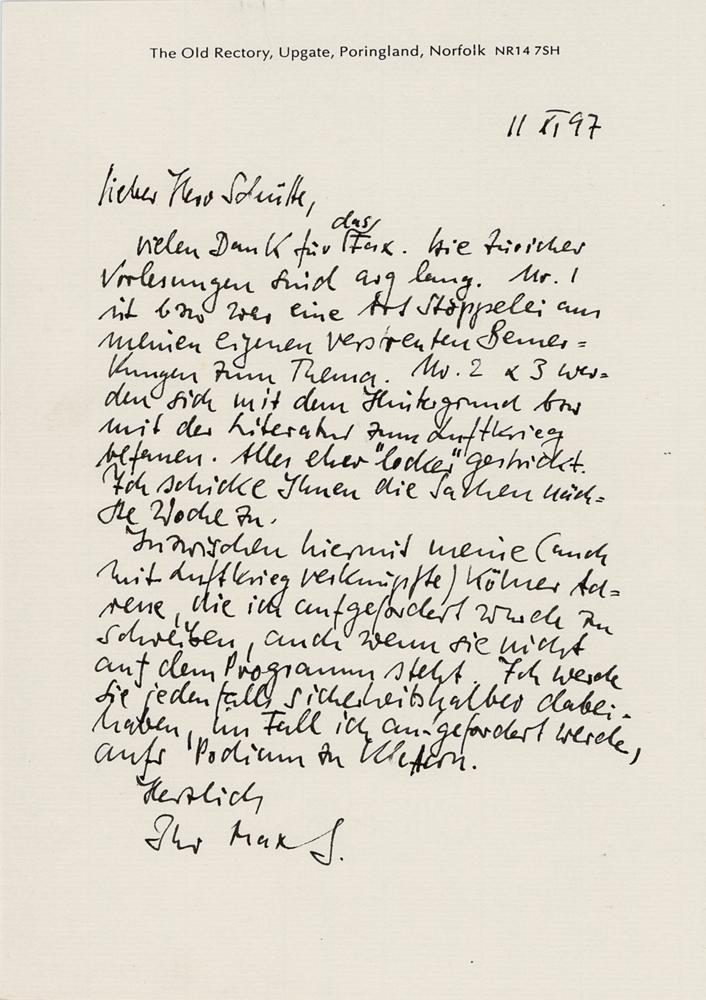 The Old Rectory, Upgate, Poringland, Norfolk NR14 7SH
11 XI 97
Lieber Herr Schütte,
das
vielen Dank für Fax. Die Züricher
Vorlesungen sind arg lang. Nr. 1
ist bzw war eine Art Stoppelei aus
meinen eigenen verstreuten Bemer=
kungen zum Thema. Nr. 2 & 3 wer=
den sich mit dem Hintergrund bzw
mit der Literatur zum Luftkrieg
befassen. Alles eher "locker" gestrickt.
Ich schicke Ihnen die Sachen näch=
ste Woche zu.
Inzwischen hiermit meine (auch
mit Luftkrieg verknüpfte) Kölner Ad=
resse, die ich aufgefordert wurde zu
schreiben, auch wenn sie nicht
auf dem Programm steht. Ich werde
sie jedenfalls sicherheitshalber dabei-
haben, im Fall ich aufgefordert werde,
aufs Podium zu klettern.
Herzlich
Ihr Max S.